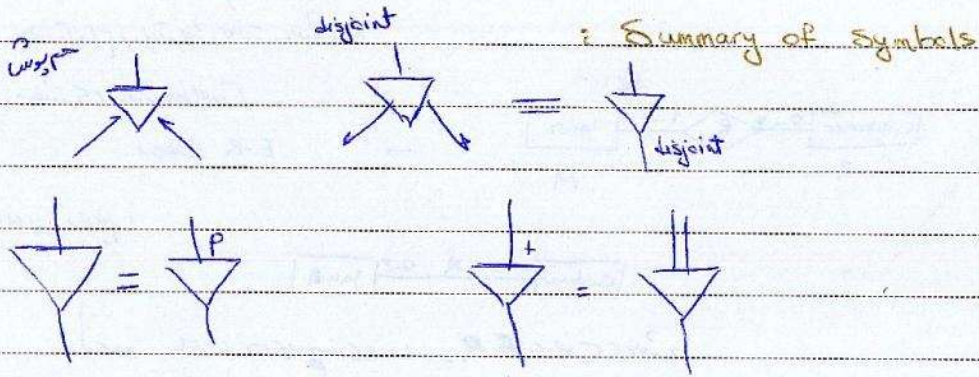 : Summary of Symbols
disjoint
هم پوش
disjoint
=
P
=
+
=